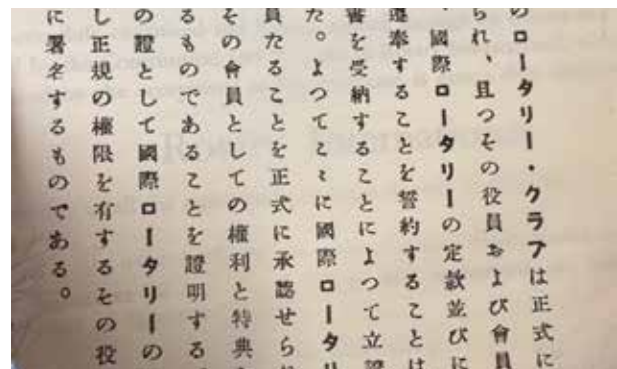 のロータリー・クラブは正式に
られ、且つその役員および會員
國際ロータリーの定款並びに
遵奉することを誓約することは
を受納することによつて立
た。よつてこゝに國際ロータリ
員たることを正式に承認せら
その會員としての權利と特典
るものであることを證明する
の證として國際ロータリーの
し正規の權限を有するその役
に署名するものである。